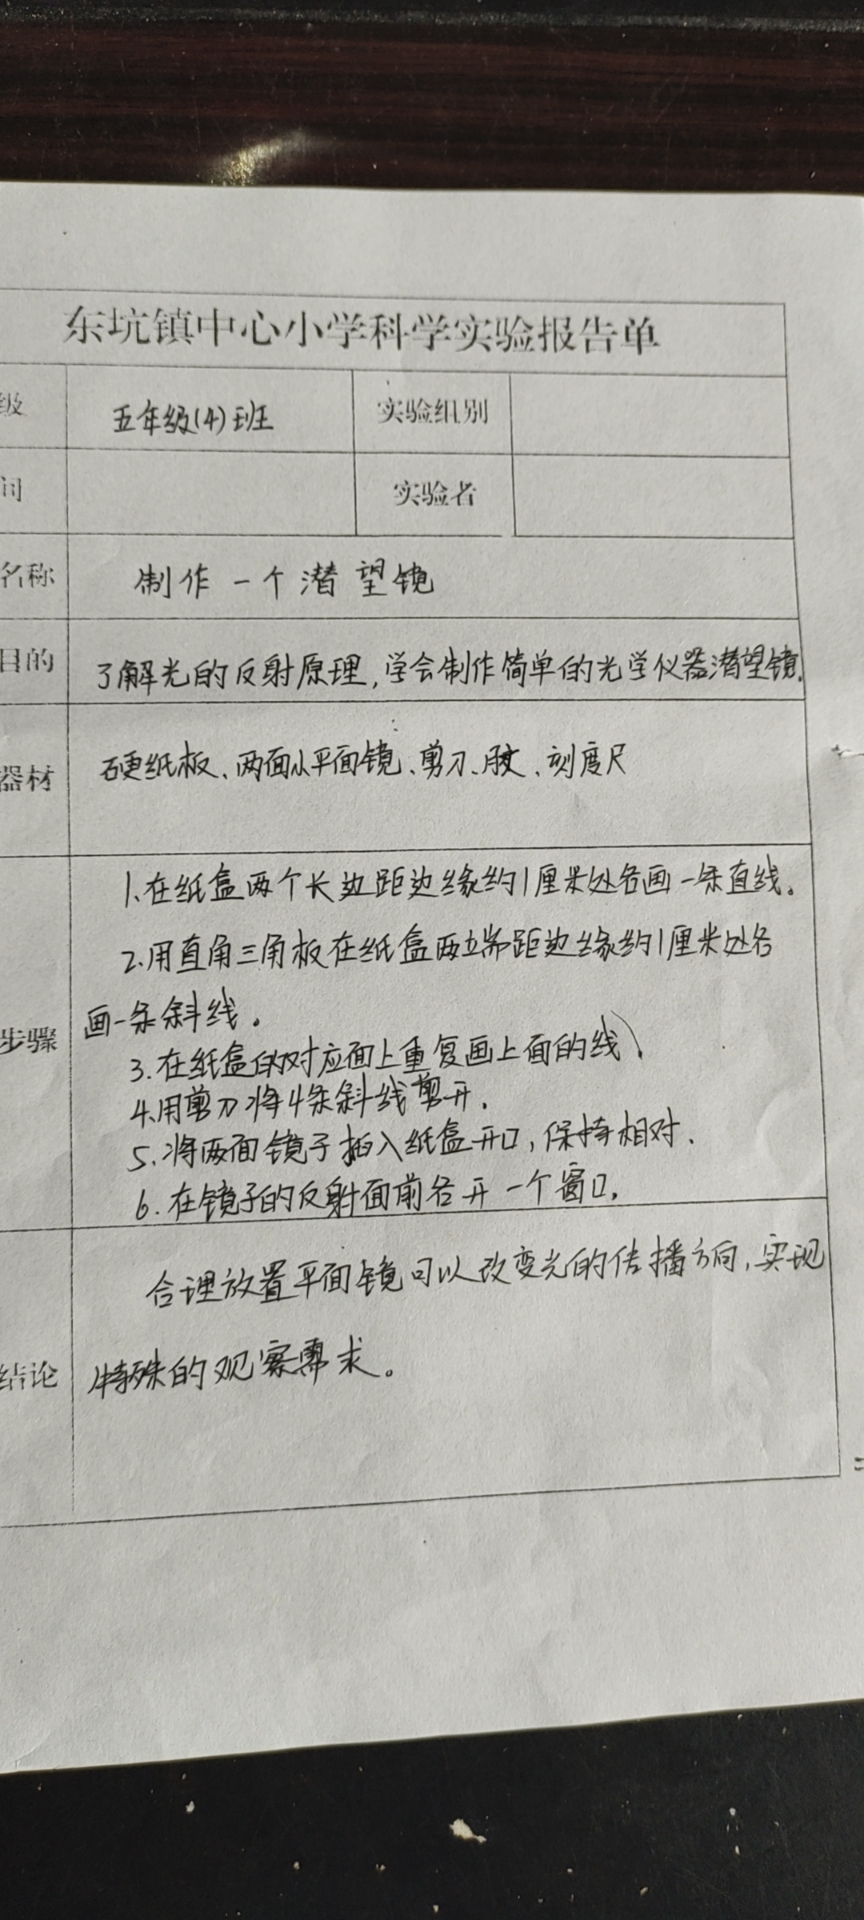 东坑镇中心小学科学实验报告单
级 五年级(4)班 实验组别
间 实验者
名称 制作一个潜望镜
目的 了解光的反射原理,学会制作简单的光学仪器潜望镜.
器材 硬纸板、两面小平面镜、剪刀、胶、刻度尺
1.在纸盒两个长边距边缘约1厘米处各画一条直线。
2.用直角三角板在纸盒两端距边缘约1厘米处各
画一条斜线。
步骤
3.在纸盒的对应面上重复画上面的线、
4.用剪刀将4条斜线剪开.
5.将两面镜子插入纸盒开口,保持相对.
6.在镜子的反射面前各开一个窗口.
合理放置平面镜可以改变光的传播方向,实现
结论 特殊的观察需求。